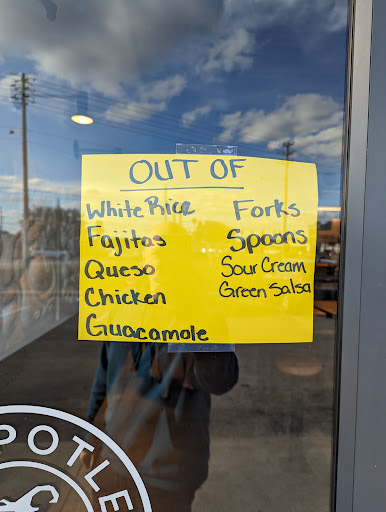 OUT OF
White Rice
Fajitas
Queso
Chicken
Guacamole
Forks
Spoons
Sour Cream
Green Salsa
POTLE